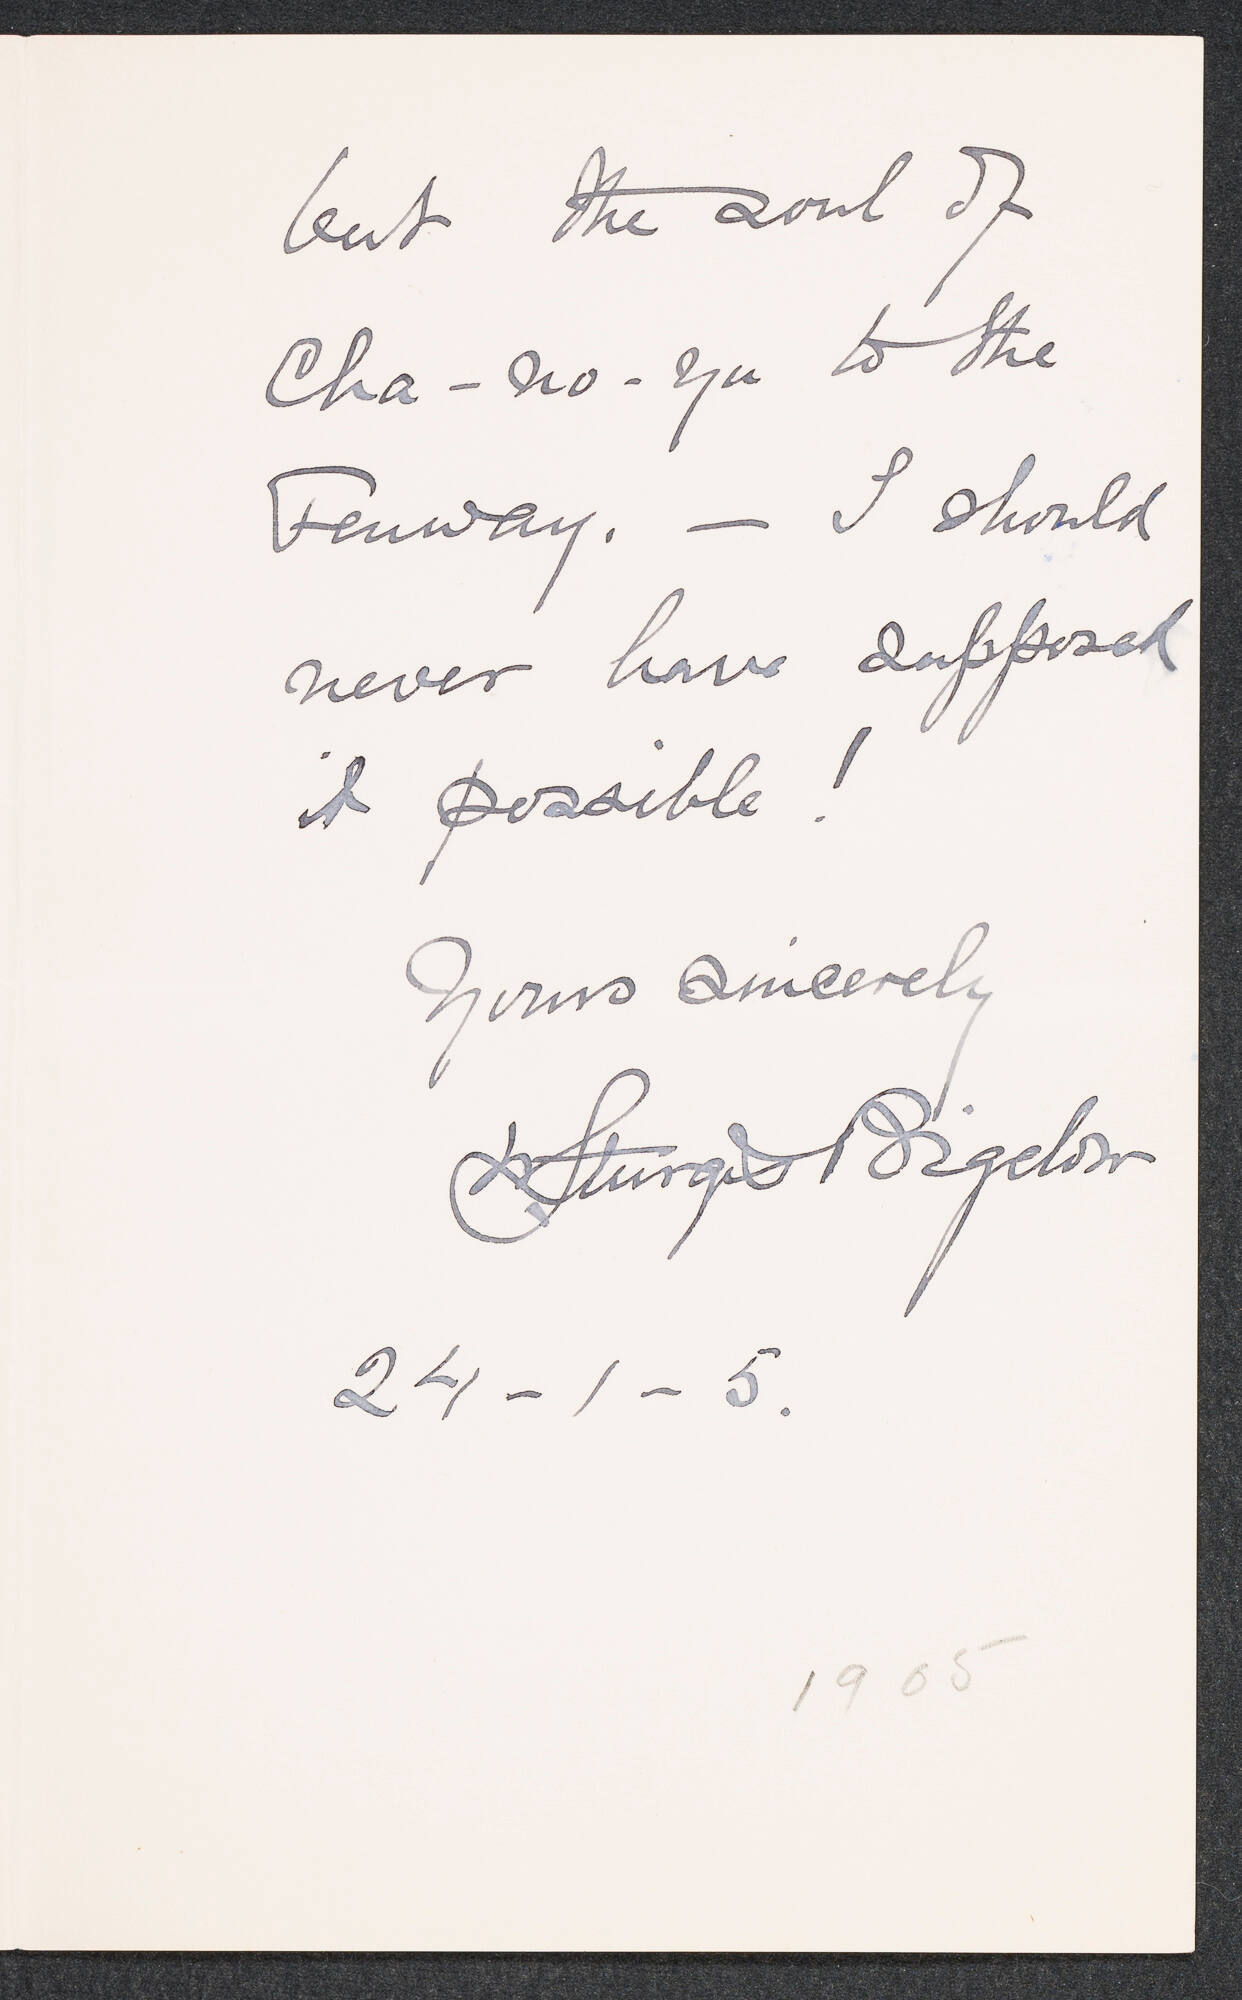 but the soul of
Cha-no-yu to the
Fenway. — I should
never have supposed
it possible!
Yours sincerely
W Sturgis Bigelow
24-1-5.
1905